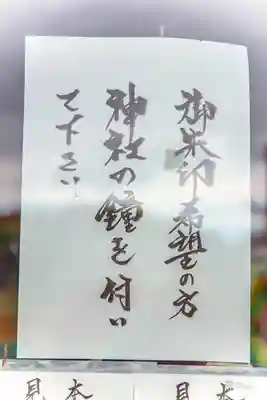 御朱印希望の方
神社の鐘を付い
て下さい。
見本
見本